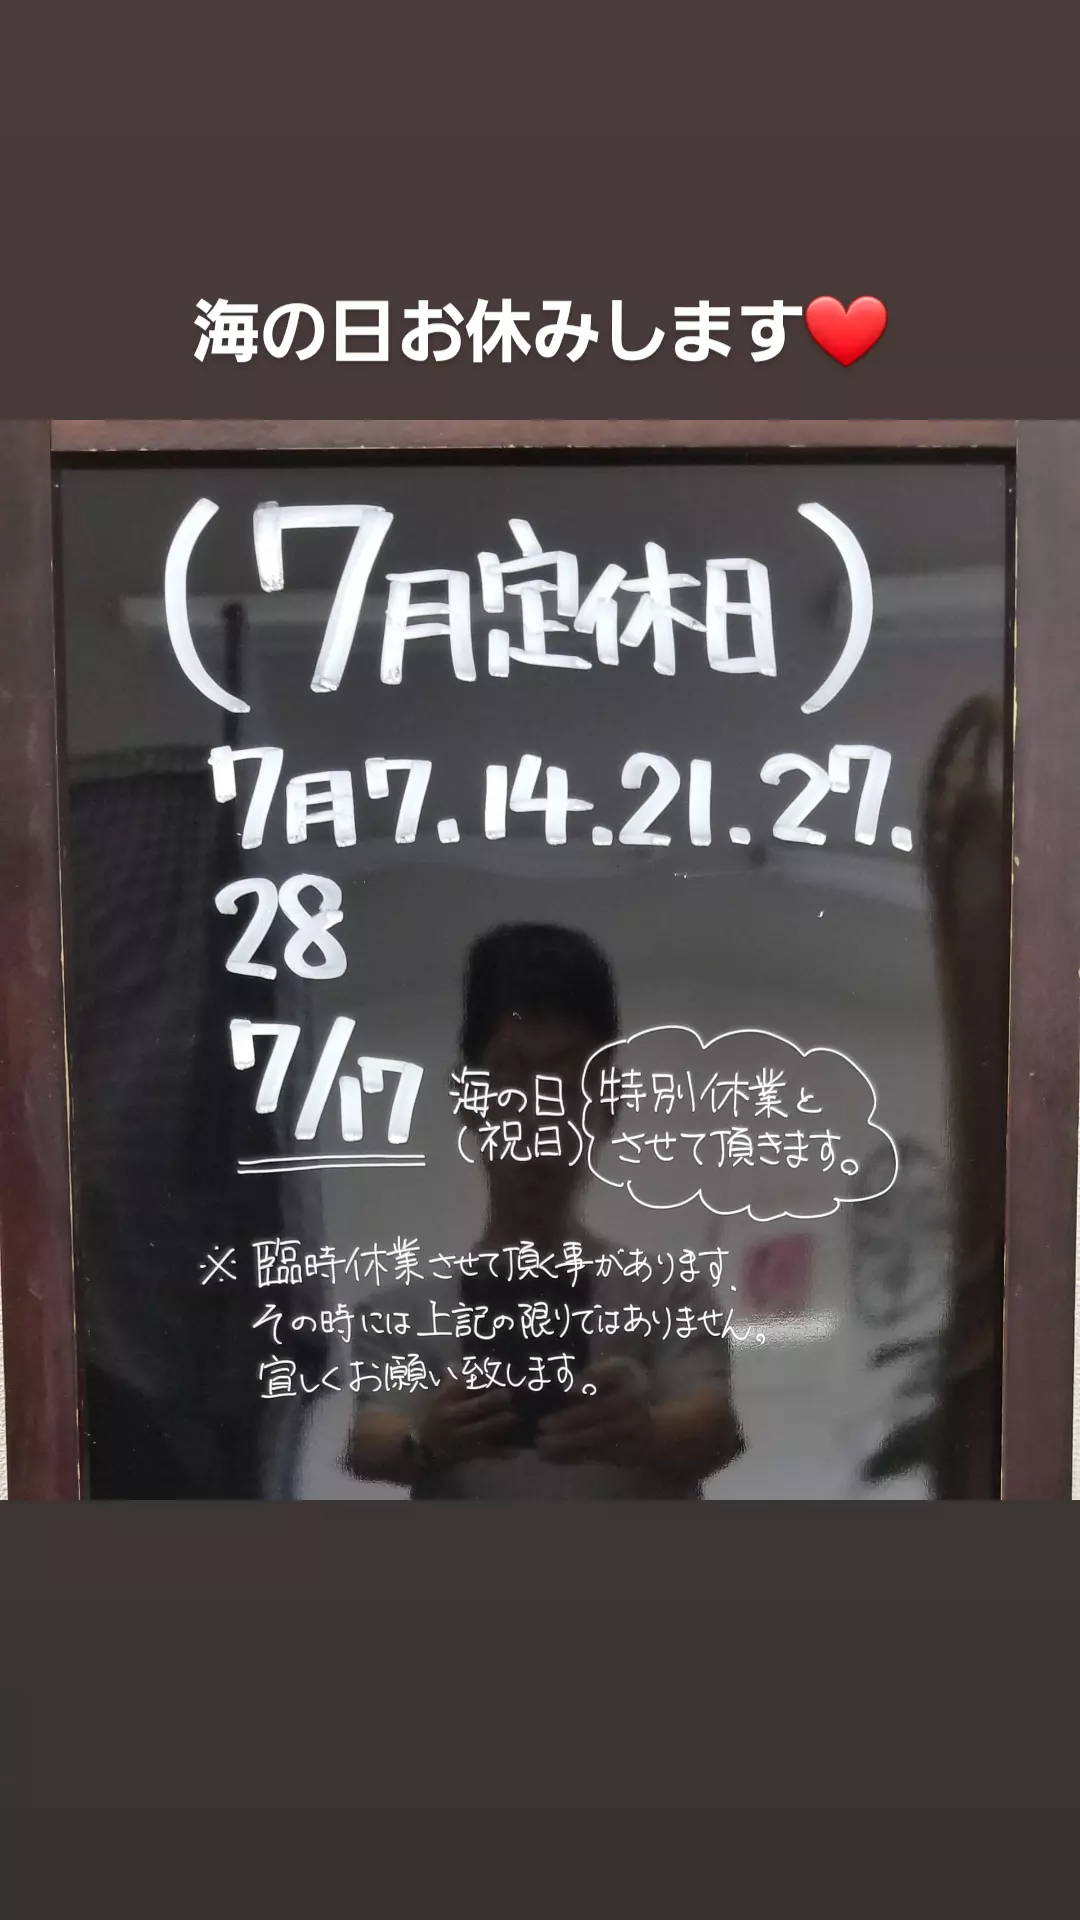 海の日お休みします❤️
(7月定休日)
7月7.14.21.27.
28
7/17
海の日
(祝日)
特別休業と
させて頂きます。
※臨時休業させて頂く事があります.
その時には上記の限りではありません。
宜しくお願い致します。